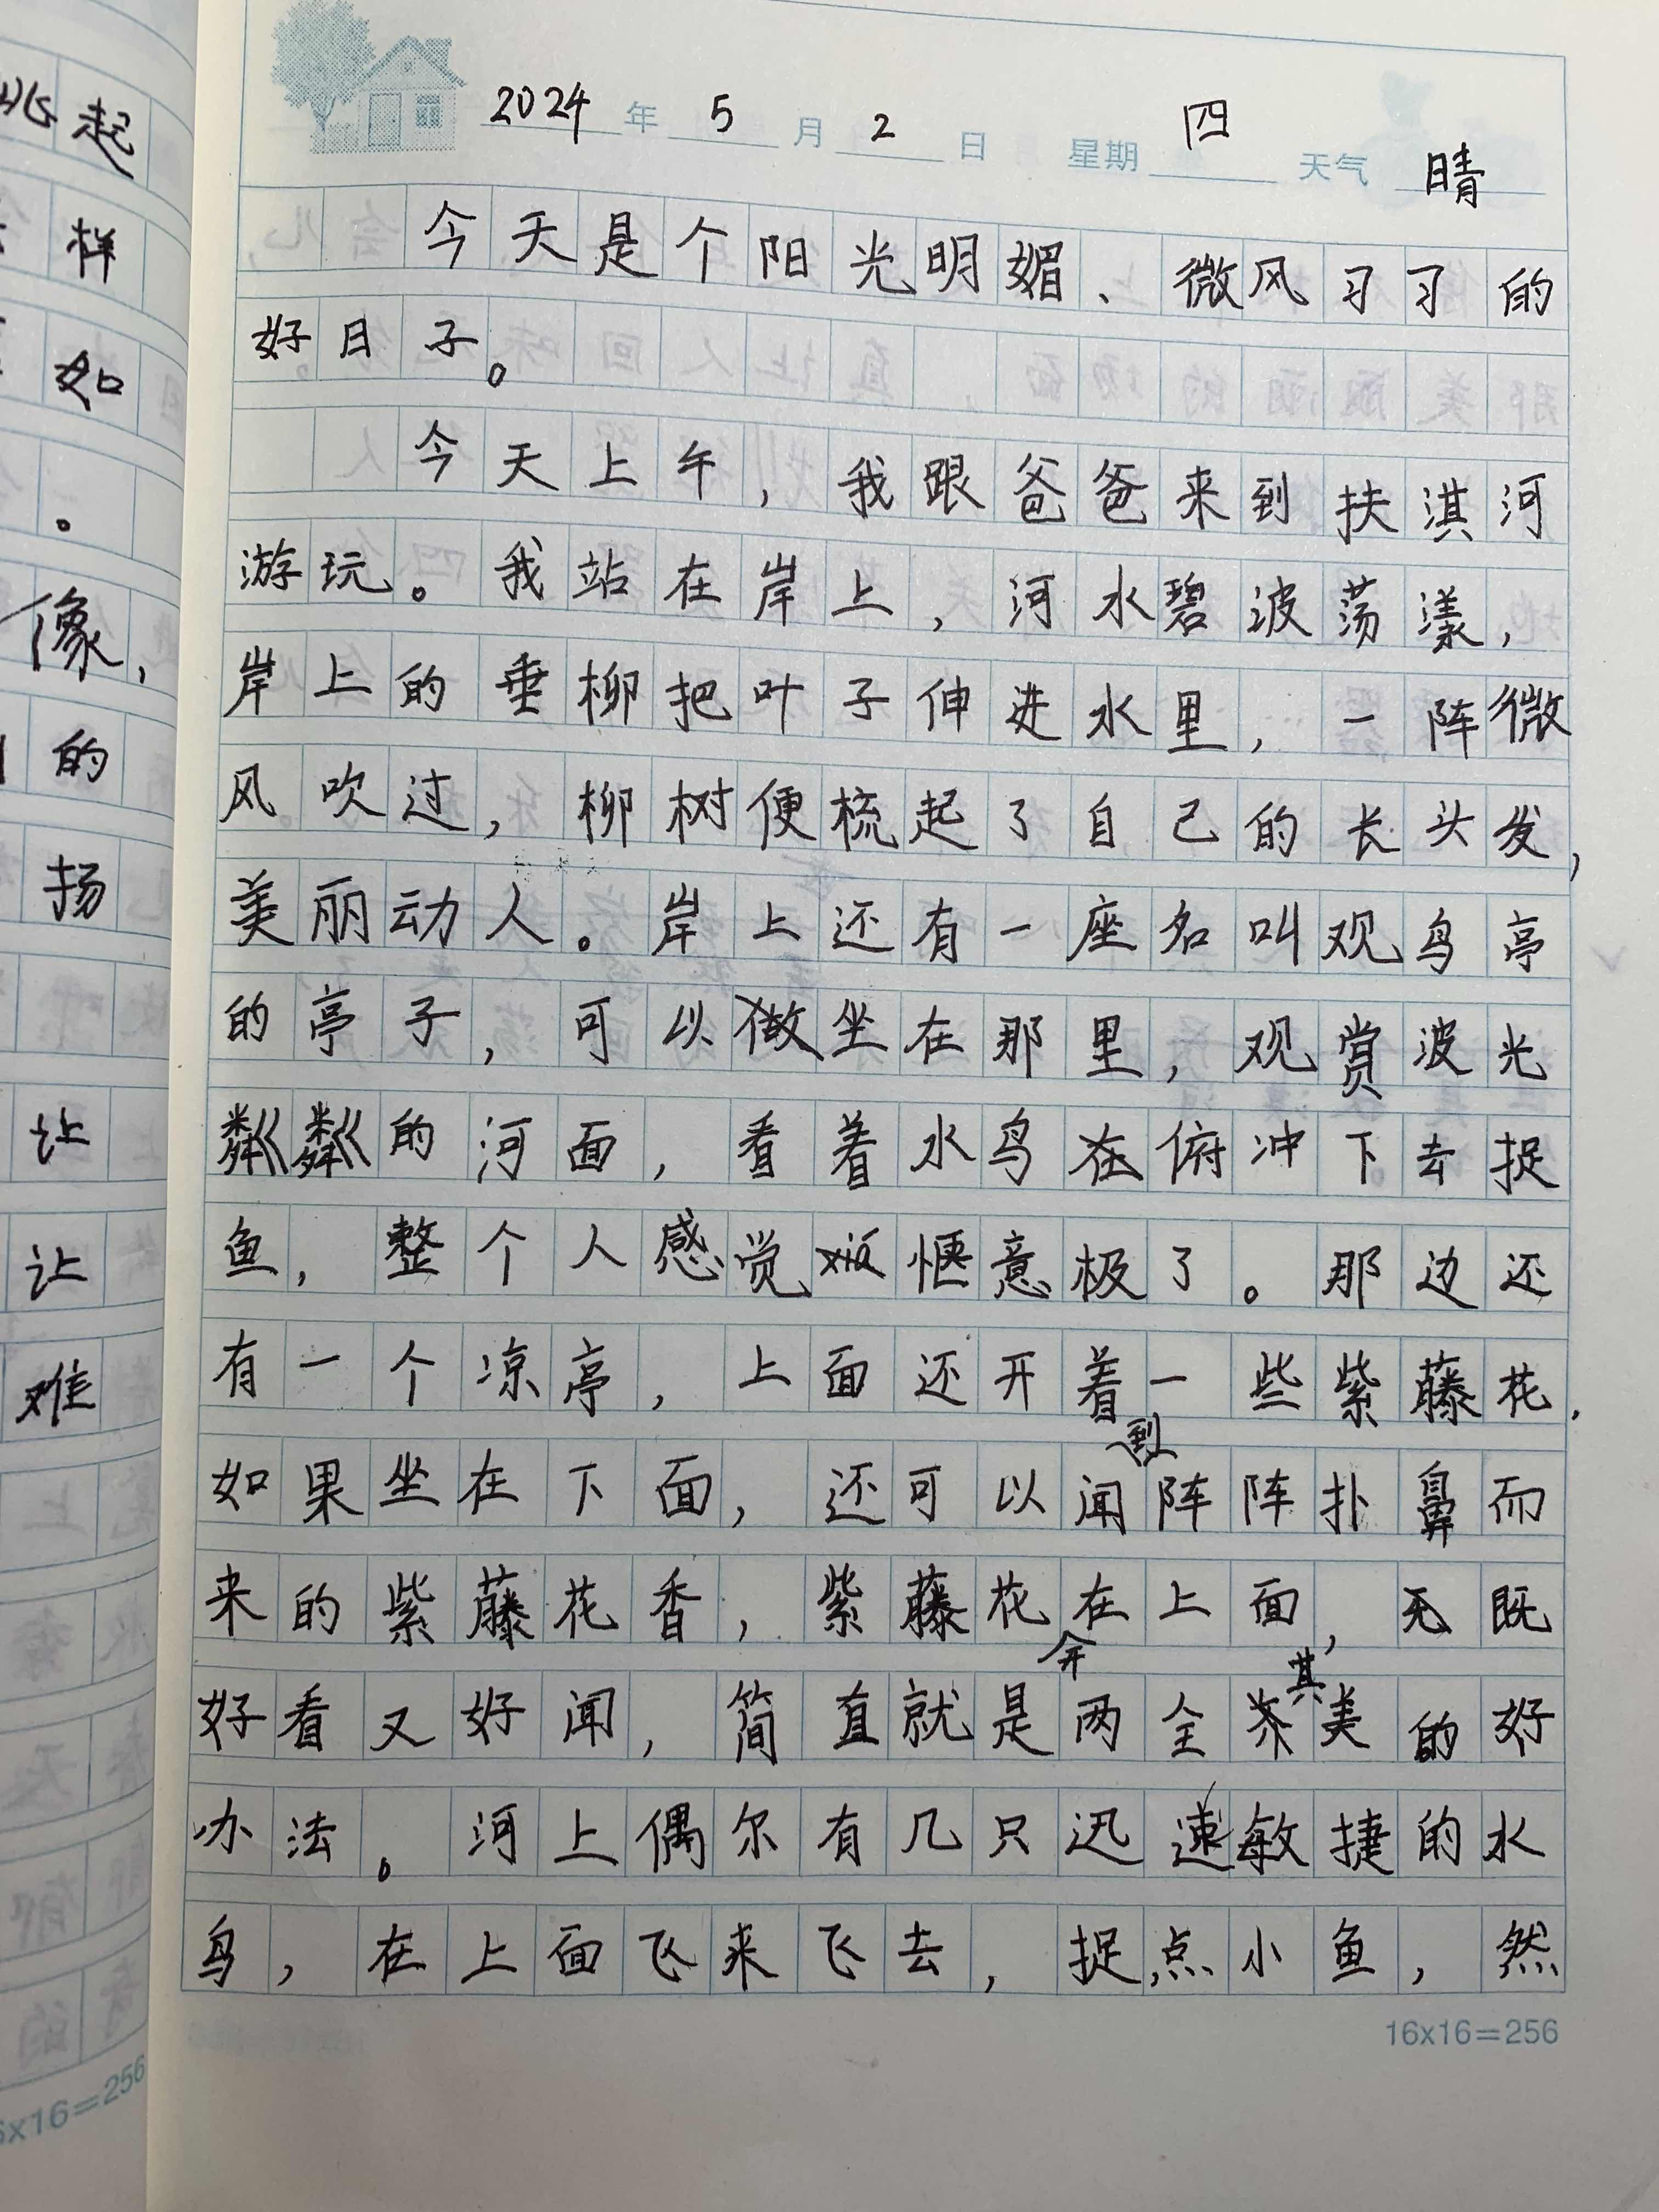 2024年5月2日 星期四 天气晴
今天是个阳光明媚、微风习习的
好日子。
今天上午，我跟爸爸来到扶淇河
游玩。我站在岸上，河水碧波荡漾，
岸上的垂柳把叶子伸进水里，一阵微
风吹过，柳树便梳起了自己的长头发，
美丽动人。岸上还有一座名叫观鸟亭
的亭子，可以坐在那里，观赏波光
粼粼的河面，看着水鸟在俯冲下去捉
鱼，整个人感觉惬意极了。那边还
有一个凉亭，上面还开着一些紫藤花，
如果坐在下面，还可以闻到阵阵扑鼻而
来的紫藤花香，紫藤花在上面，既
好看又好闻，简直就是两全其美的好
办法。河上偶尔有几只迅速敏捷的水
鸟，在上面飞来飞去，捉点小鱼，然
16x16=256
起
样
如
。
像，
的
扬
让
让
难
x16=256